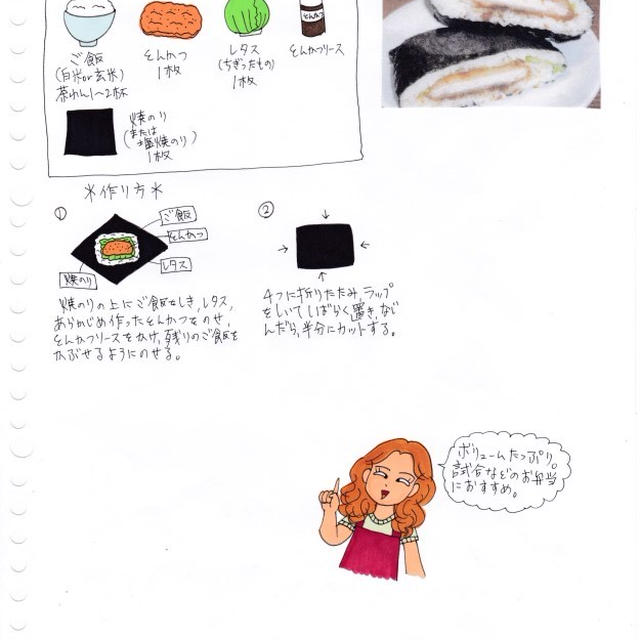 ご飯
(白米or玄米)
茶わん1〜2杯
とんかつ
1枚
レタス
(ちぎったもの)
1枚
とんかつ
とんかつソース
焼のり
(または
塩焼のり)
1枚
*作り方*
①
ご飯
とんかつ
レタス
焼のり
焼のりの上にご飯をしき,レタス,
あらかじめ作ったとんかつをのせ,
とんかつソースをかけ,残りのご飯を
かぶせるようにのせる。
②
4つに折りたたみ,ラップ
をしいてしばらく置き,なじ
んだら,半分にカットする。
ボリュームたっぷり。
試合などのお弁当
におすすめ。